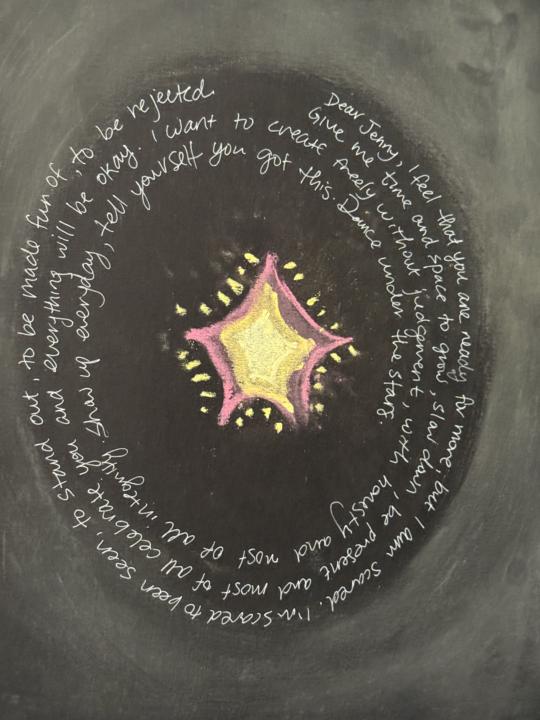 Dear Jenny, I feel that you are ready for more, but I am scared. I'm scared to been seen, to stand out, to be made fun of, to be rejected.
Give me time and space to grow, slow down, be present and most of all celebrate you and everything will be okay. I want to create freely without judgement, with honesty and most of all integrity. Show up everyday, tell yourself you got this. Dance under the stars.